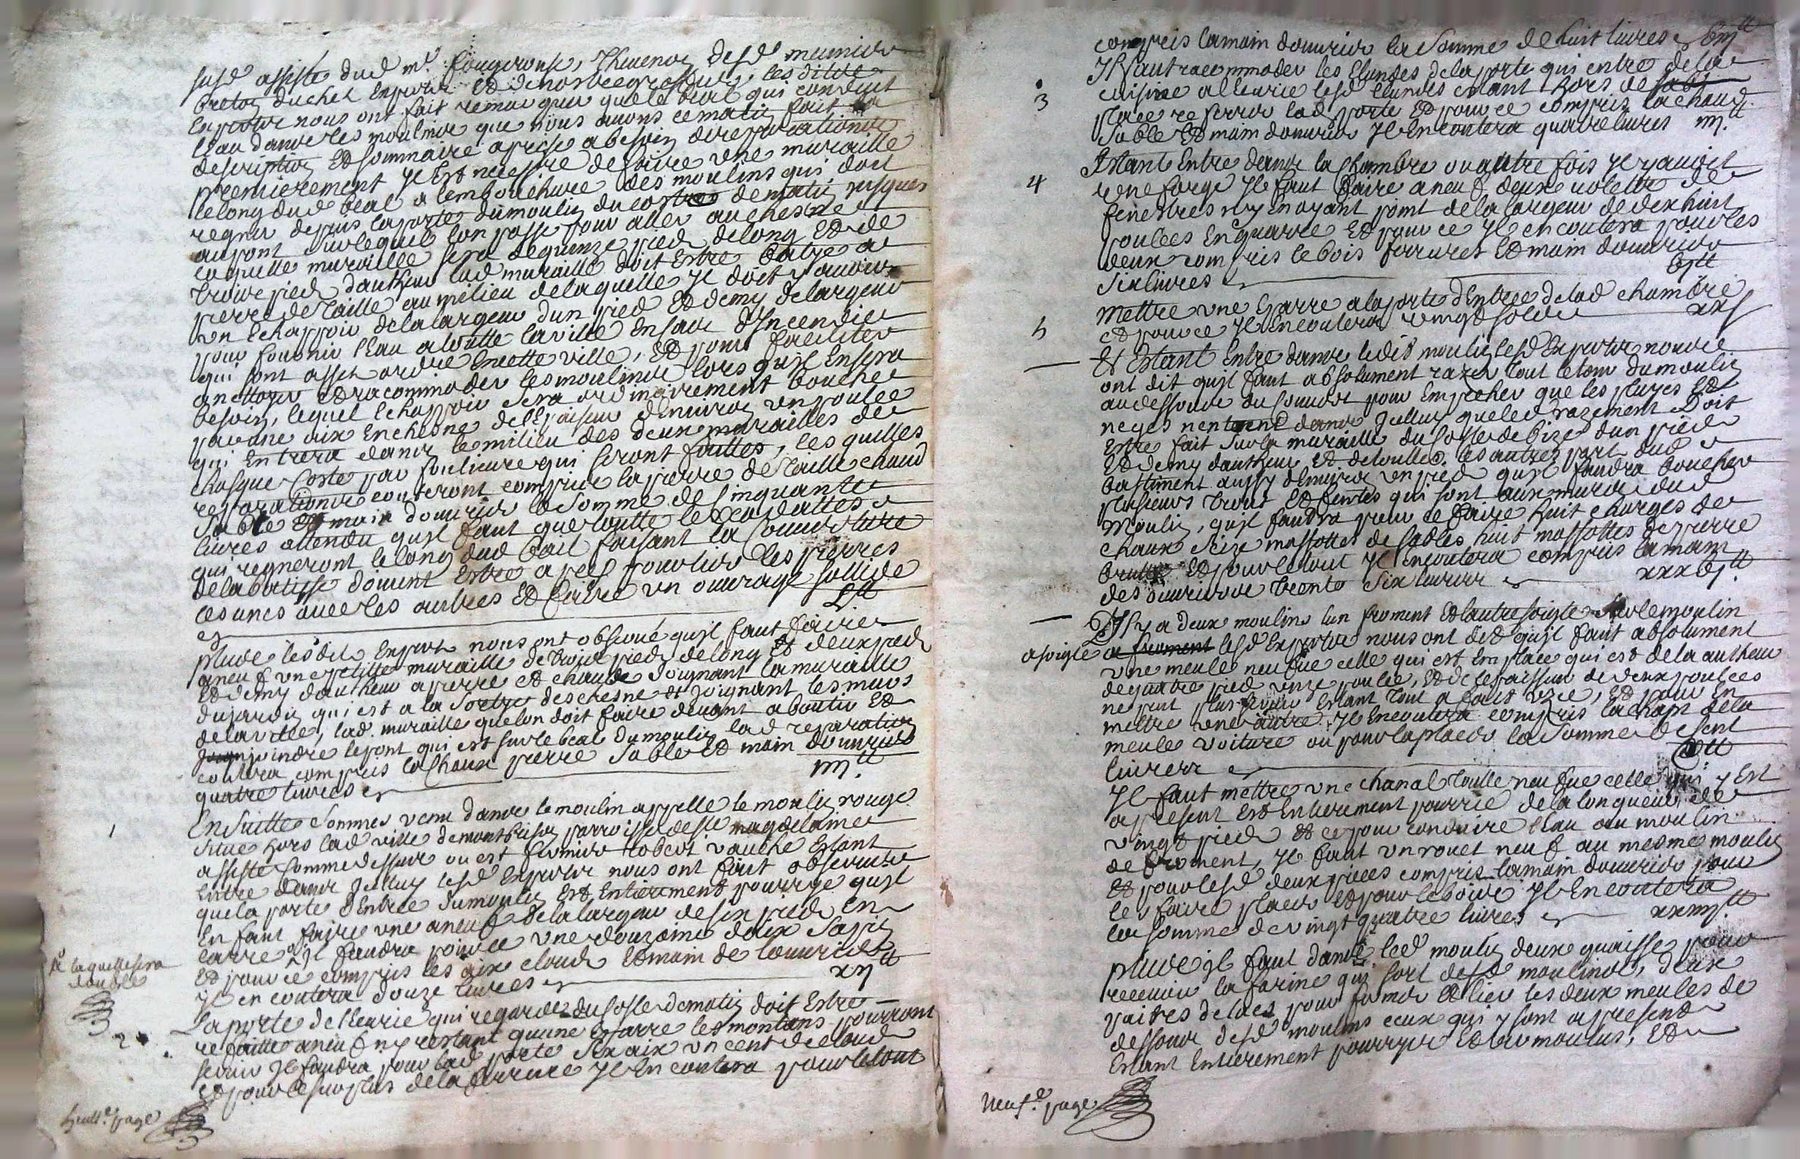 susd assisté dud mr fougerouse, Thevenon desd meunier
Broton duchet Expertz Et
Expertz nous ont fait remarquer que le beal qui conduit
l'eau dans les moulins que nous avons ce matin fait la
description Et sommaire aprise a besoin de reparations
premierement yl est nécessere de faire une muraille
le long dud beal a l'embouchure des moulins qui doit
regner depuis la porte du moulin du costes de matin jusques
au pont sur lequel l'on passe pour aller au chesne
laquelle muraille sera de quinze pied de long Et de
trois pied d'autheur lad muraille doit Estre batye a
pierre de taille au milieu de laquelle yl doit y avoir
un Echappoir de la largeur d'un pied Et demy de largeur
pour fournir l'eau a toutte la ville En faut d'Incendie
qui sont asses ordre En cette ville, Et pour faciliter
a nettoyer Et racommoder les moulins lors qu'yl En sera
besoin, lequel Echappoir sera ordinairement bouché
par une aix En chesne de l'Epaisseur d'Environ un poulce
qui Entrera dans le milieu des deux murailles de
chasque Coste par coulieure qui seront faittes, les quelles
reparations couteront compris la pierre de taille chaud
sable Et main d'ouvrier la somme de Cinquante
livres attendu qu'yl faut que toutte les
qui regneront le long dud bail faisant la Couverture
de la batisse doivent Estre a pres pour lier les pierres
les unes avec les autres Et faire un ouvrage sollide
Ltt
pluse lesdit Expert nous ont observé qu'yl faut faire
aneuf une petitte muraille de trois pied de long Et deux pied
Et demy d'autheur a pierre et chaux joignant la muraille
du jardin qui est a la sortie des chesne et joignant les murs
de la ville, lad muraille que l'on doit faire devant aboutir Et
joindre le pont qui est sur le beal du moulin lad reparation
coutera compris la chaux pierre sable Et main d'ouvrier
quatre livres
IIII tt
1
Ensuitte sommes venu dans le moulin appellé le moulin rouge
situé hors lad ville de montbrison parroisse de ste magdelaine
assiste comme dessus ou est fermier robert vauche Estant
Entre dans Jcelluy lesd Expertz nous ont fait observer
que la porte d'Entrée du moulin Est Entierement pourrye qu'yl
En faut faire une aneuf de la largeur de six pied En
carré yl faudra pour ce une douzaine d'aix sapin
Et pour ce compris les aix cloud Et main de l'ouvrier
yl en coutera douze livres
XII tt
laquelle sera
double
2
La porte de l'Ecurie qui regarde du coste de matin doit Estre
refaitte aneuf n'y restant qu'une Eparre les montans pourront
servir yl faudra pour lad porte six aix un cent de cloud
Et pour le surplus de la ferrure yl En coutera pour le tout
huit.e page
compris la main d'ouvrier la Somme de huit livres
3
Yl faut racommoder les Elundes de la porte qui entre de la
cuisine a l'Ecurie lesd Elundes estant hors de
place resserrer lad porte Et pour ce compris la chaud
sable Et main d'ouvrier yl En coutera quatre livres IIII tt
4
Estant Entre dans la chambre ou autre fois yl y avoit
une forge yl faut faire aneuf deux volette de
fenestres n'y En ayant point de la largeur de dix huit
poulces En quarré Et pour ce yl en coutera pour les
deux compris le bois ferrures Et main d'ouvrier
six livres
VI tt
5
Mettre une Eparre a la porte d'Entrée de lad chambre
et pour ce yl En coutera vingt solds
XX s
Et Estant Entre dans ledit moulin lesd Expertz nous
ont dit qu'yl faut absolument razer tout le tour du moulin
au dessoubs du couvert pour Empecher que les pluyes Et
neges n'entrent dans Jcelluy que led razement doit
Estre fait sur la muraille du coste de bize d'un pied
Et demy d'autheur Et de touttes les autres part dud
bastiment aussy d'Environ un pied qu'yl faudra boucher
plusieurs trous Et fentes qui sont aux murs dud
moulin, qu'yl faudra pour ce faire huit charges de
chaux seize massottes de sables huit massottes de pierre
brutte Et pour le tout yl En coutera compris la main
des ouvriers trente six livres
XXXVI tt
Yl y a deux moulins l'un froment Et l'autre soigle sur le moulin
a soigle a froment lesd Expertz nous ont dit qu'yl faut absolument
une meule neufve celle qui est En place qui est de la autheur
de quatre pied onze poulce, Et de l'Epaisseur de deux poulces
ne peut plus servir Estant tout a fait uzée, Et pour En
mettre une autre, yl En coutera compris l'achapt de la
meule voiture ou pour la placer la somme de Cent
livres
C tt
Yl faut mettre une chanal taille neufve celle qui y Est
a present Est Entierement pourrie de la longueur de
vingt pied Et ce pour conduire l'eau au moulin
de froment, yl faut un rouet neuf au mesme moulin
Et pour lesd deux pieces compris la main d'ouvrier pour
les faire placer Et pour le bois yl En coutera
la somme de vingt quatre livres
XXIIII tt
pluse yl faut dans led moulin deux quaisse pour
recevoir la farine qui sort desd moulins, deux
paires de pour fermer Et lier les deux meules de
dessous desd moulins ceux qui y sont a present
Estant Entierement pourrye Et vermoulus, Et
neuf.e page